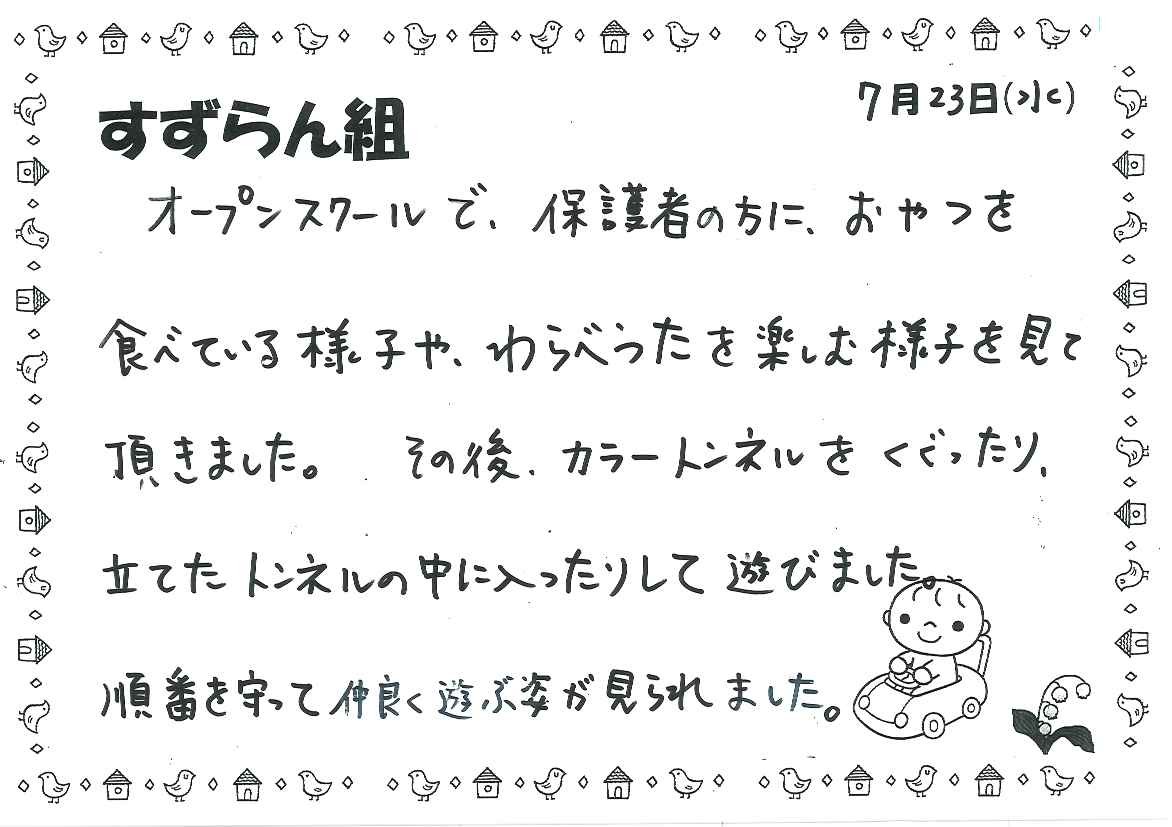 7月23日(水)
すずらん組
オープンスクールで、保護者の方に、おやつを
食べている様子や、わらべうたを楽しむ様子を見て
頂きました。 その後、カラートンネルをくぐったり、
立てたトンネルの中に入ったりして遊びました。
順番を守って仲良く遊ぶ姿が見られました。